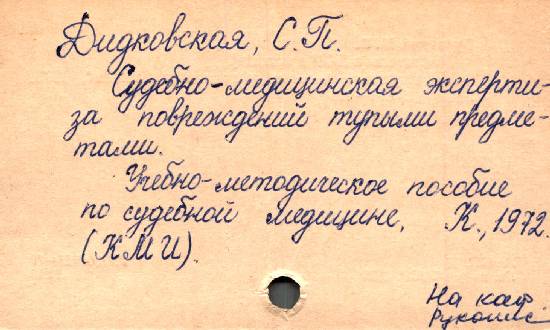 Дидковская, С.П.
Судебно-медицинская эксперти-
за повреждений тупыми предме-
тами.
Учебно-методическое пособие
по судебной медицине, К., 1972.
(КМИ).
На каф